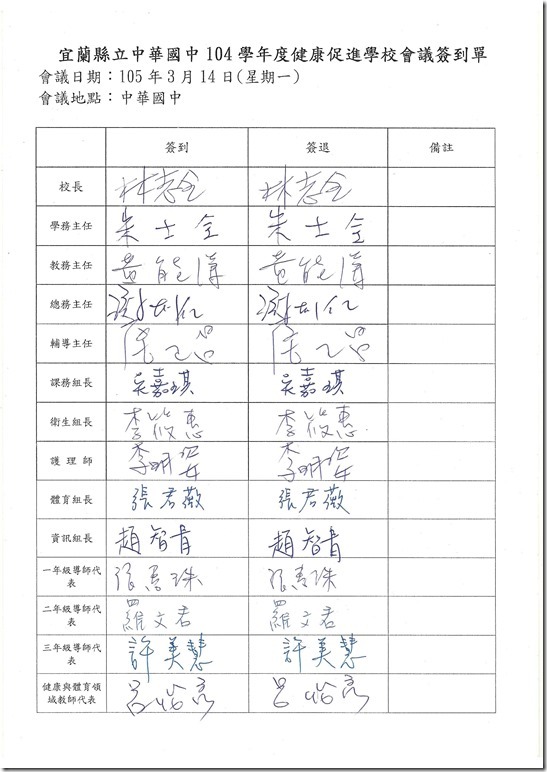 宜蘭縣立中華國中 104 學年度健康促進學校會議簽到單
會議日期：105 年 3 月 14 日(星期一)
會議地點：中華國中
簽到 簽退 備註
校長 林志全 林志全
學務主任 朱士全 朱士全
教務主任 黃能 黃能
總務主任
輔導主任
課務組長 吳嘉琪 吳嘉琪
衛生組長 李筱惠 李筱惠
護理師 李明 李明
體育組長 張君薇 張君薇
資訊組長 趙智育 趙智育
一年級導師代
表
張 珠 張 珠
二年級導師代
表
羅文君 羅文君
三年級導師代
表
許美慧 許美慧
健康與體育領
域教師代表
呂 呂